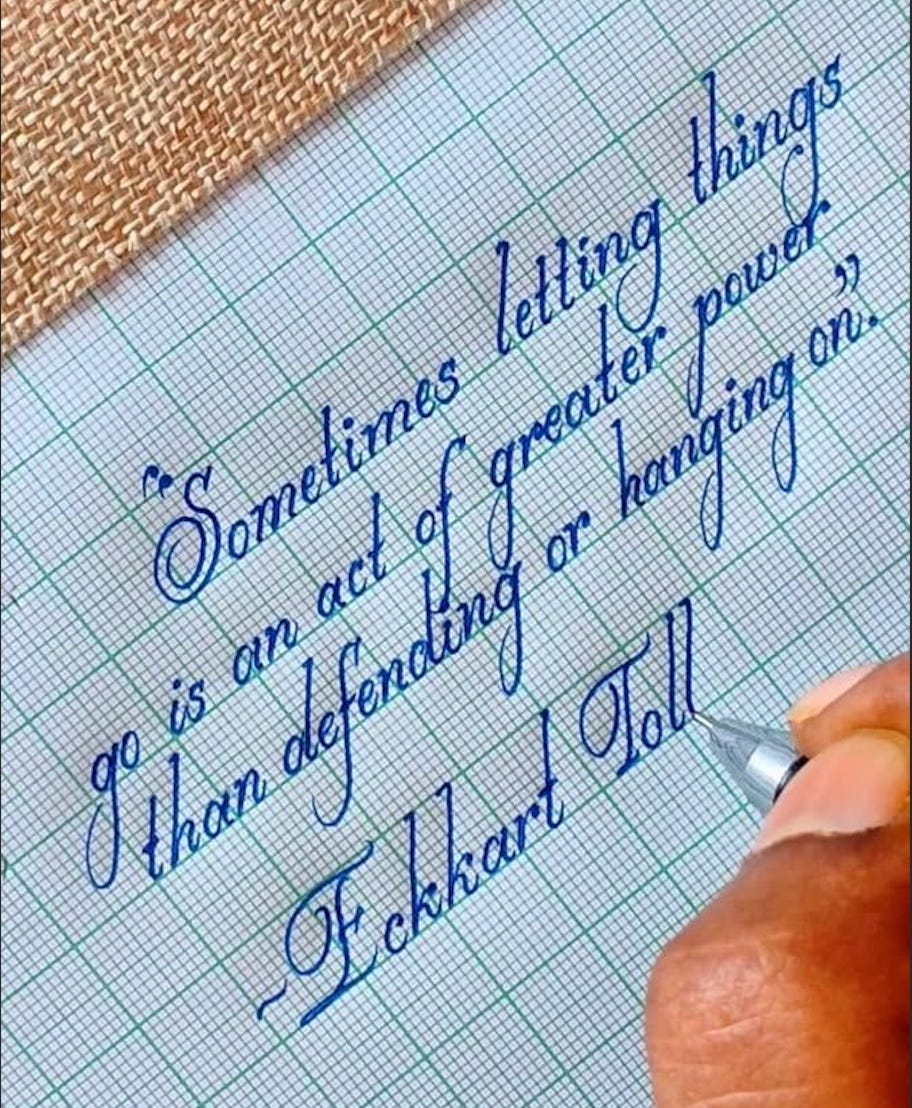 “Sometimes letting things
go is an act of greater power
than defending or hanging on”.
~Eckkart Toll